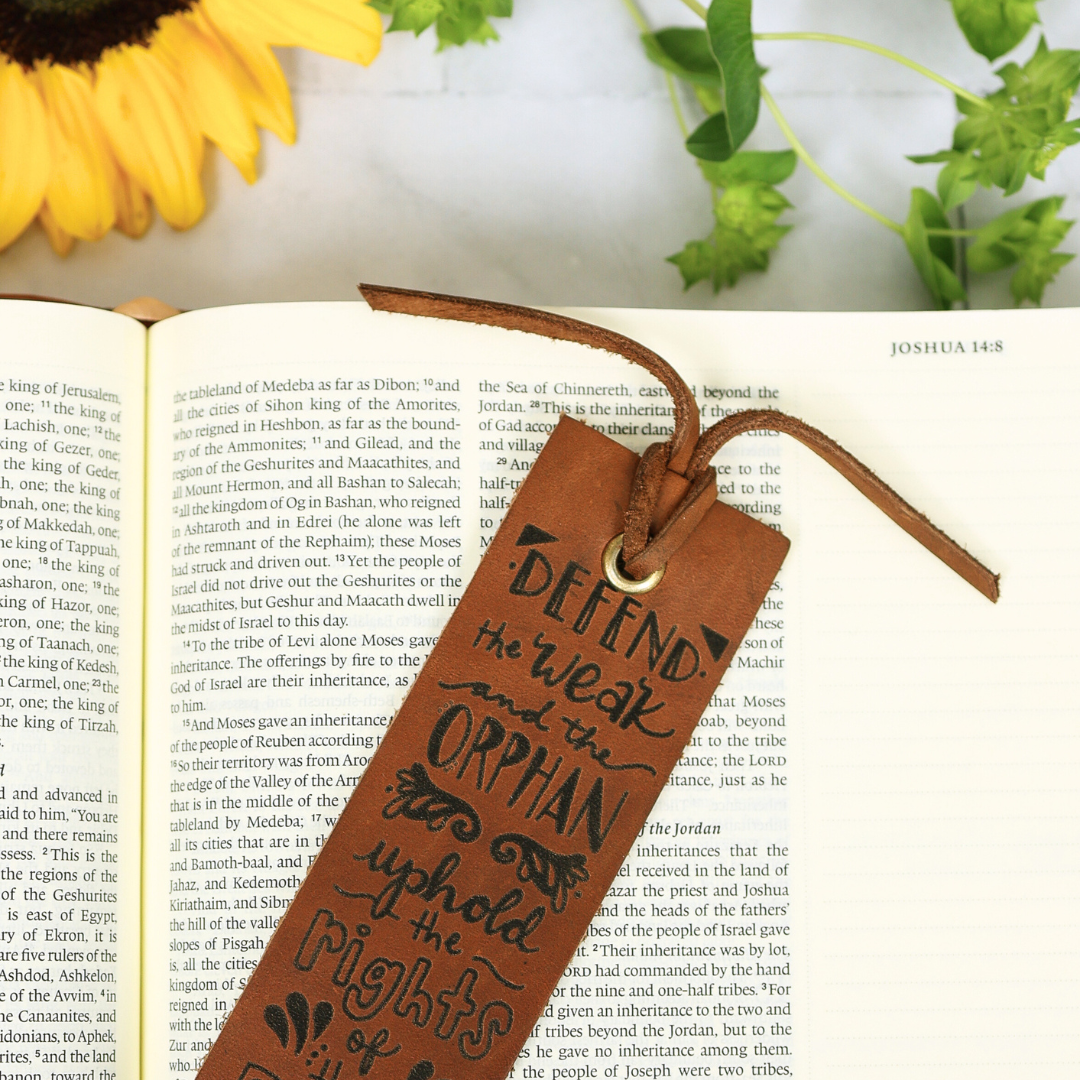 JOSHUA 14:8
he king of Jerusalem,
one; 11 the king of
Lachish, one; 12 the
king of Gezer, one;
the king of Geder,
one; the king of
one; the king
of Makkedah, one;
he king of Tappuah,
one; 18 the king of
one; 19 the
king of Hazor, one;
one; the king
ng of Taanach, one;
the king of Kedesh,
Carmel, one; 23 the
one; the king of
the king of Tirzah,
d and advanced in
aid to him, “You are
and there remains
ssess. 2 This is the
the regions of the
of the Geshurites
is east of Egypt,
ry of Ekron, it is
are five rulers of the
Ashdod, Ashkelon,
e of the Avvim, 4 in
he Canaanites, and
idonians, to Aphek,
rites, 5 and the land
banon, toward the
the tableland of Medeba as far as Dibon; 10 and
all the cities of Sihon king of the Amorites,
who reigned in Heshbon, as far as the bound-
ary of the Ammonites; 11 and Gilead, and the
region of the Geshurites and Maacathites, and
all Mount Hermon, and all Bashan to Salecah;
12 all the kingdom of Og in Bashan, who reigned
in Ashtaroth and in Edrei (he alone was left
of the remnant of the Rephaim); these Moses
had struck and driven out. 13 Yet the people of
Israel did not drive out the Geshurites or the
Maacathites, but Geshur and Maacath dwell in
the midst of Israel to this day.
14 To the tribe of Levi alone Moses gave
inheritance. The offerings by fire to the
God of Israel are their inheritance, as
to him.
15 And Moses gave an inheritance
of the people of Reuben according
16 So their territory was from Aroe
the edge of the Valley of the Arn
that is in the middle of the
tableland by Medeba; 17 wi
all its cities that are in th
and Bamoth-baal, and
Jahaz, and Kedemoth
Kiriathaim, and Sibm
the hill of the valle
slopes of Pisgah
is, all the cities
kingdom of S
reigned in
with the le
Zur and
who
the Sea of Chinnereth, eastward beyond the
Jordan. 28 This is the inheritance of the people
of Gad according to their clans, cities
and villag
29 And ce to the
half-tr ed to the
half- cording
to m
the
hese
son of
Machir
that Moses
oab, beyond
at to the tribe
tance; the LORD
itance, just as he
f the Jordan
inheritances that the
el received in the land of
azar the priest and Joshua
and the heads of the fathers’
ibes of the people of Israel gave
it. 2 Their inheritance was by lot,
ORD had commanded by the hand
or the nine and one-half tribes. 3 For
d given an inheritance to the two and
f tribes beyond the Jordan, but to the
es he gave no inheritance among them.
the people of Joseph were two tribes,
DEFEND
the weak
and the
ORPHAN
uphold
the
rights
of